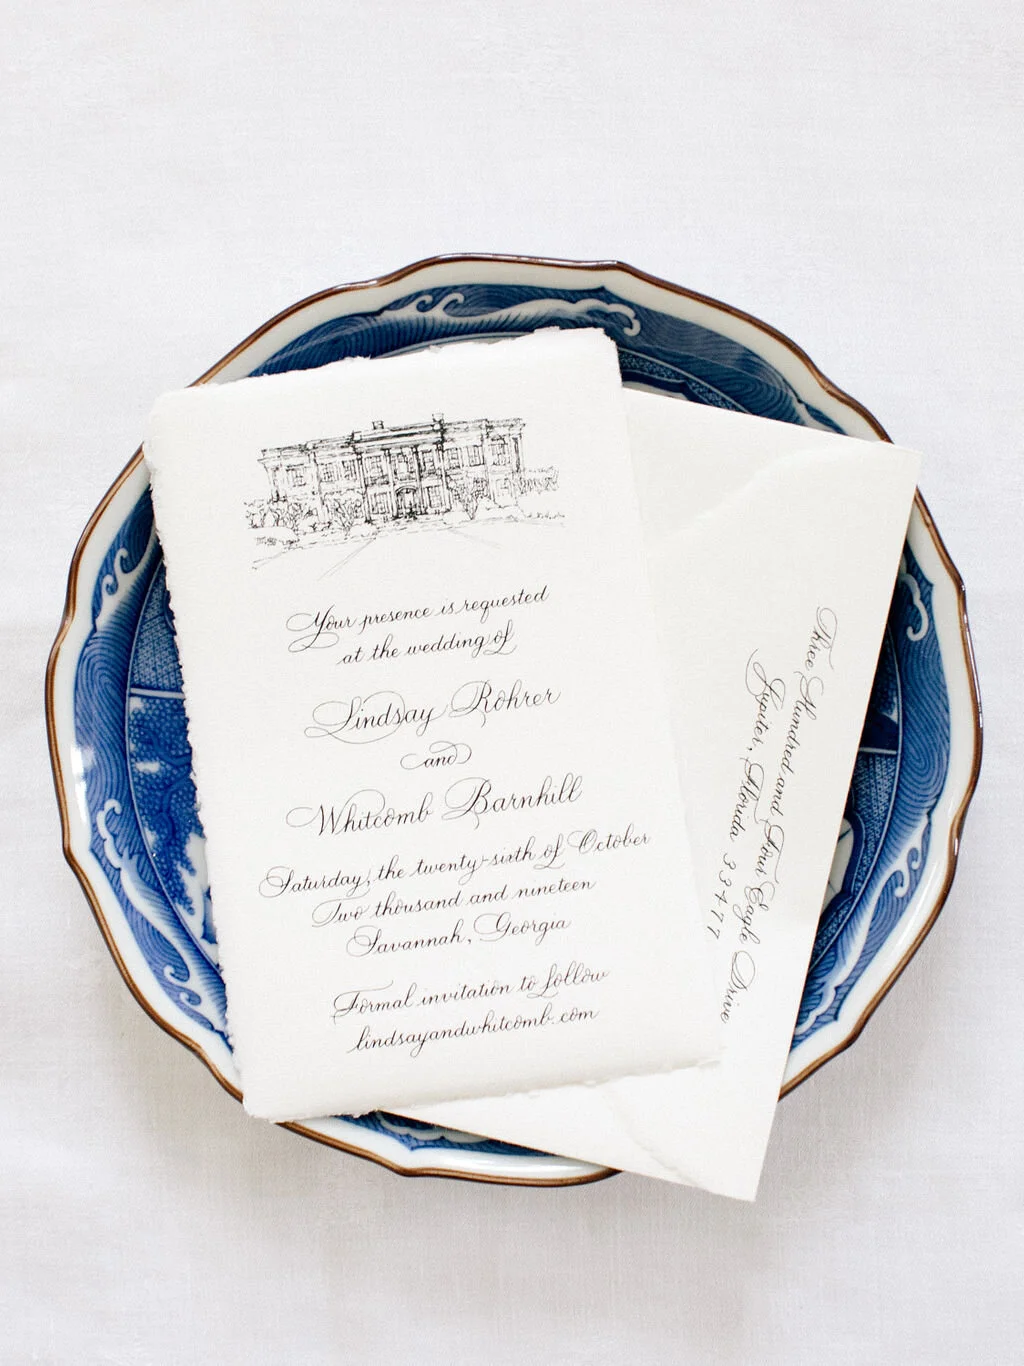 Your presence is requested
at the wedding of
Lindsay Rohrer
and
Whitcomb Barnhill
Saturday, the twenty-sixth of October
Two thousand and nineteen
Savannah, Georgia
Formal invitation to follow
lindsayandwhitcomb.com
Three Hundred and Four Eagle Drive
Jupiter, Florida 33477